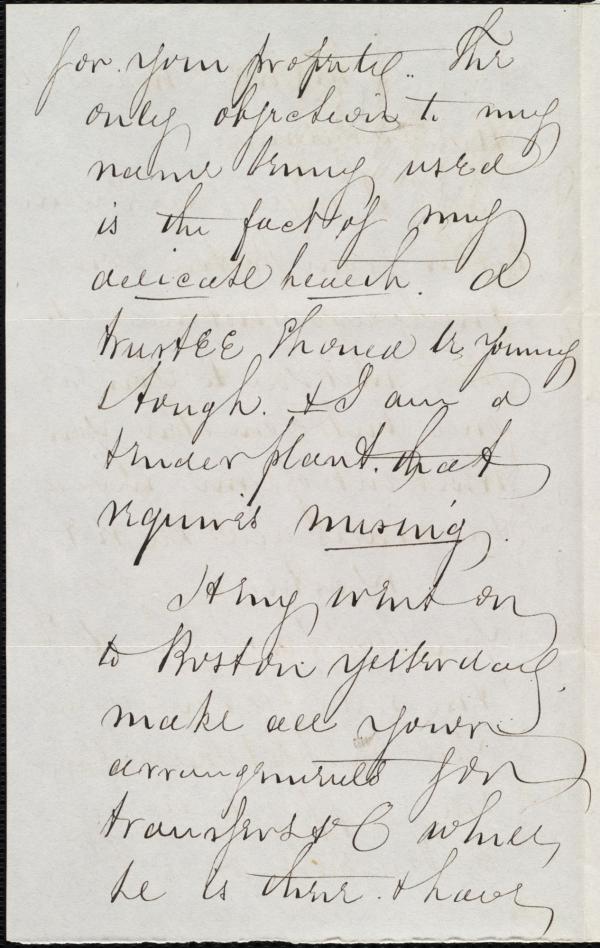 for your property. The
only objection to my
name being used
is the fact of my
delicate health. A
trustee should be young
& tough. & I am a
tender plant. that
requires nursing.
Heny went on
to Boston yesterday.
make all your
arrangements for
transfers &C while
he is there. & have